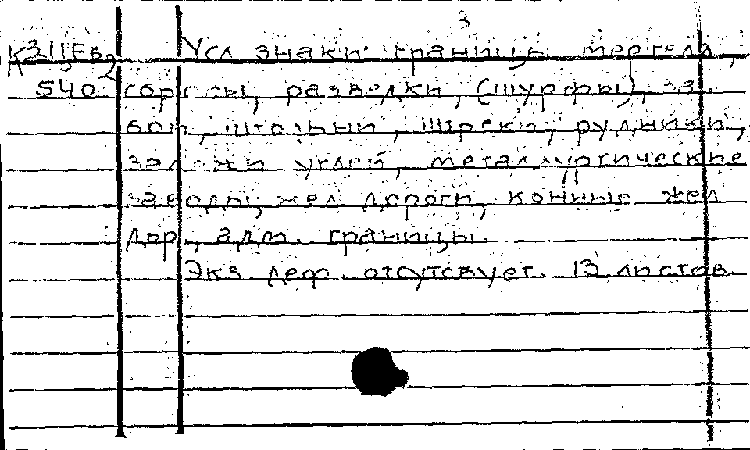 3
К3 11Ев Усл знаки: границы мергеля,
2
540 разведки, (шурфы), за-
бои, штольни, штреки, рудники,
залежи углей, металлургические
заводы, жел дороги, конные жел
дор., адм. границы.
Экз деф. отсутсвует. 13 листов